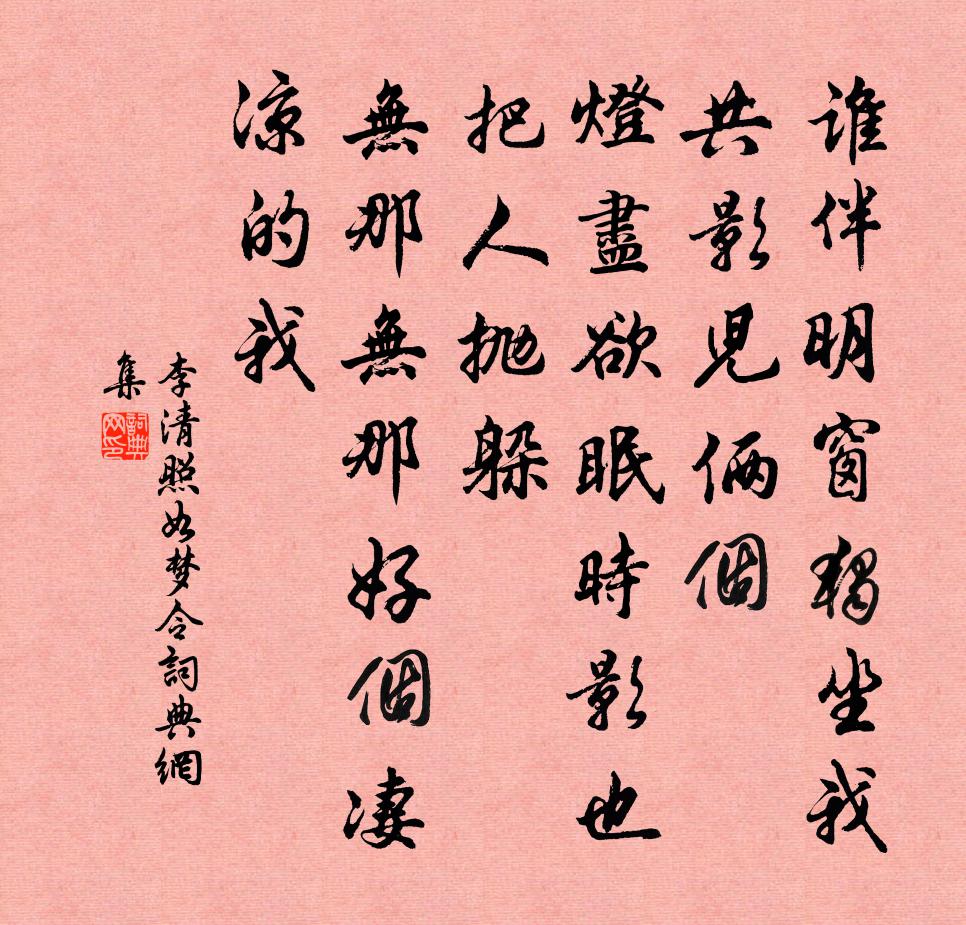 誰伴明窗獨坐我
共影兒倆個
燈盡欲眠時影也
把人抛躲
無那無那好個淒
涼的我
李清照如梦令詞典網
集
詞典
网印